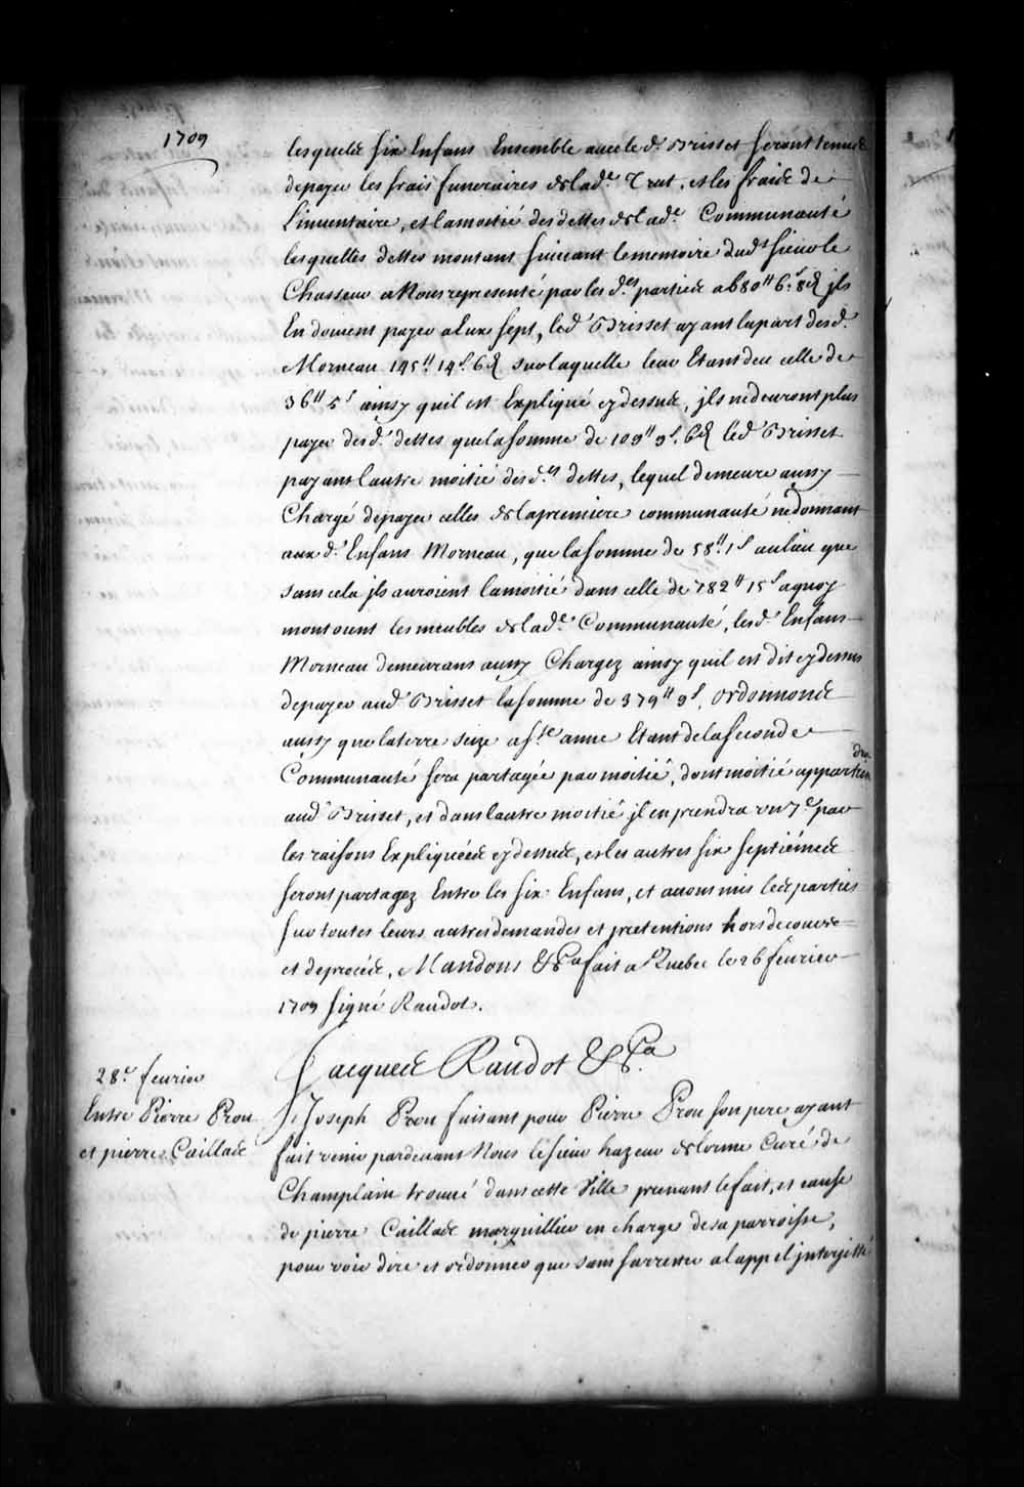 1709
lesquels six Enfans Ensemble avec le d. Brisset seront tenus
depayer les frais funeraires de lad.e Trut, et les frais de
L'inventaire, et lamoitié des dettes de lad.e Communauté
lesquelles dettes montant suivant le memoire dud.t sieur le
Chasseur a Nous representé par les d.es parties a 680tt 6s 8d jls
En doivent payer a Eux sept, led. Brisset ayant la part desd.
Morneau 145tt 14s 6d sur laquelle leur Etant deu celle de
36tt 5s ainsy quil est Expliqué cy dessus, jls ne devront plus
payer desd. dettes que la somme de 109tt 9s 6d led. Brisset
payant l'autre moitié desd.es dettes, lequel demeure aussy
Chargé de payer celles de la premiere communauté ne donnant
aux d. Enfans Morneau, que la somme de 58tt 1s au lieu que
sans cela jls auroient la moitié dans celle de 782tt 15s a quoy
montoient les meubles de lad.e Communauté, lesd. Enfans
Morneau demeurans aussy Chargez ainsy quil est dit cy dessus
depayer aud. Brisset la somme de 379tt 9s, ordonnons
aussy que la terre seize a s.te anne Etant de la seconde
Communauté sera partagée par moitié, dont moitié appartiendra
aud. Brisset, et dans l'autre moitié jl en prendra vn 7.e par
les raisons Expliquées cy dessus, et les autres six septiémes
seront partagez Entre les six Enfans, et avons mis les parties
sur toutes leurs autres demandes et pretentions hors de cour
et de procés, Mandons &ca fait a Quebec le 26 fevrier
1709 signé Raudot.
Jacques Raudot &ca
28.e fevrier
Entre Pierre Prou
et pierre Caillas
Joseph Prou faisant pour Pierre Prou son pere ayant
fait venir pardevant Nous le sieur hazeur delorme Curé de
Champlain trouvé dans cette Ville prenant le fait, et cause
de pierre Caillas marguillier en charge de sa parroisse,
pour voir dire et ordonner que sans s'arrester a l'appel jnterjetté